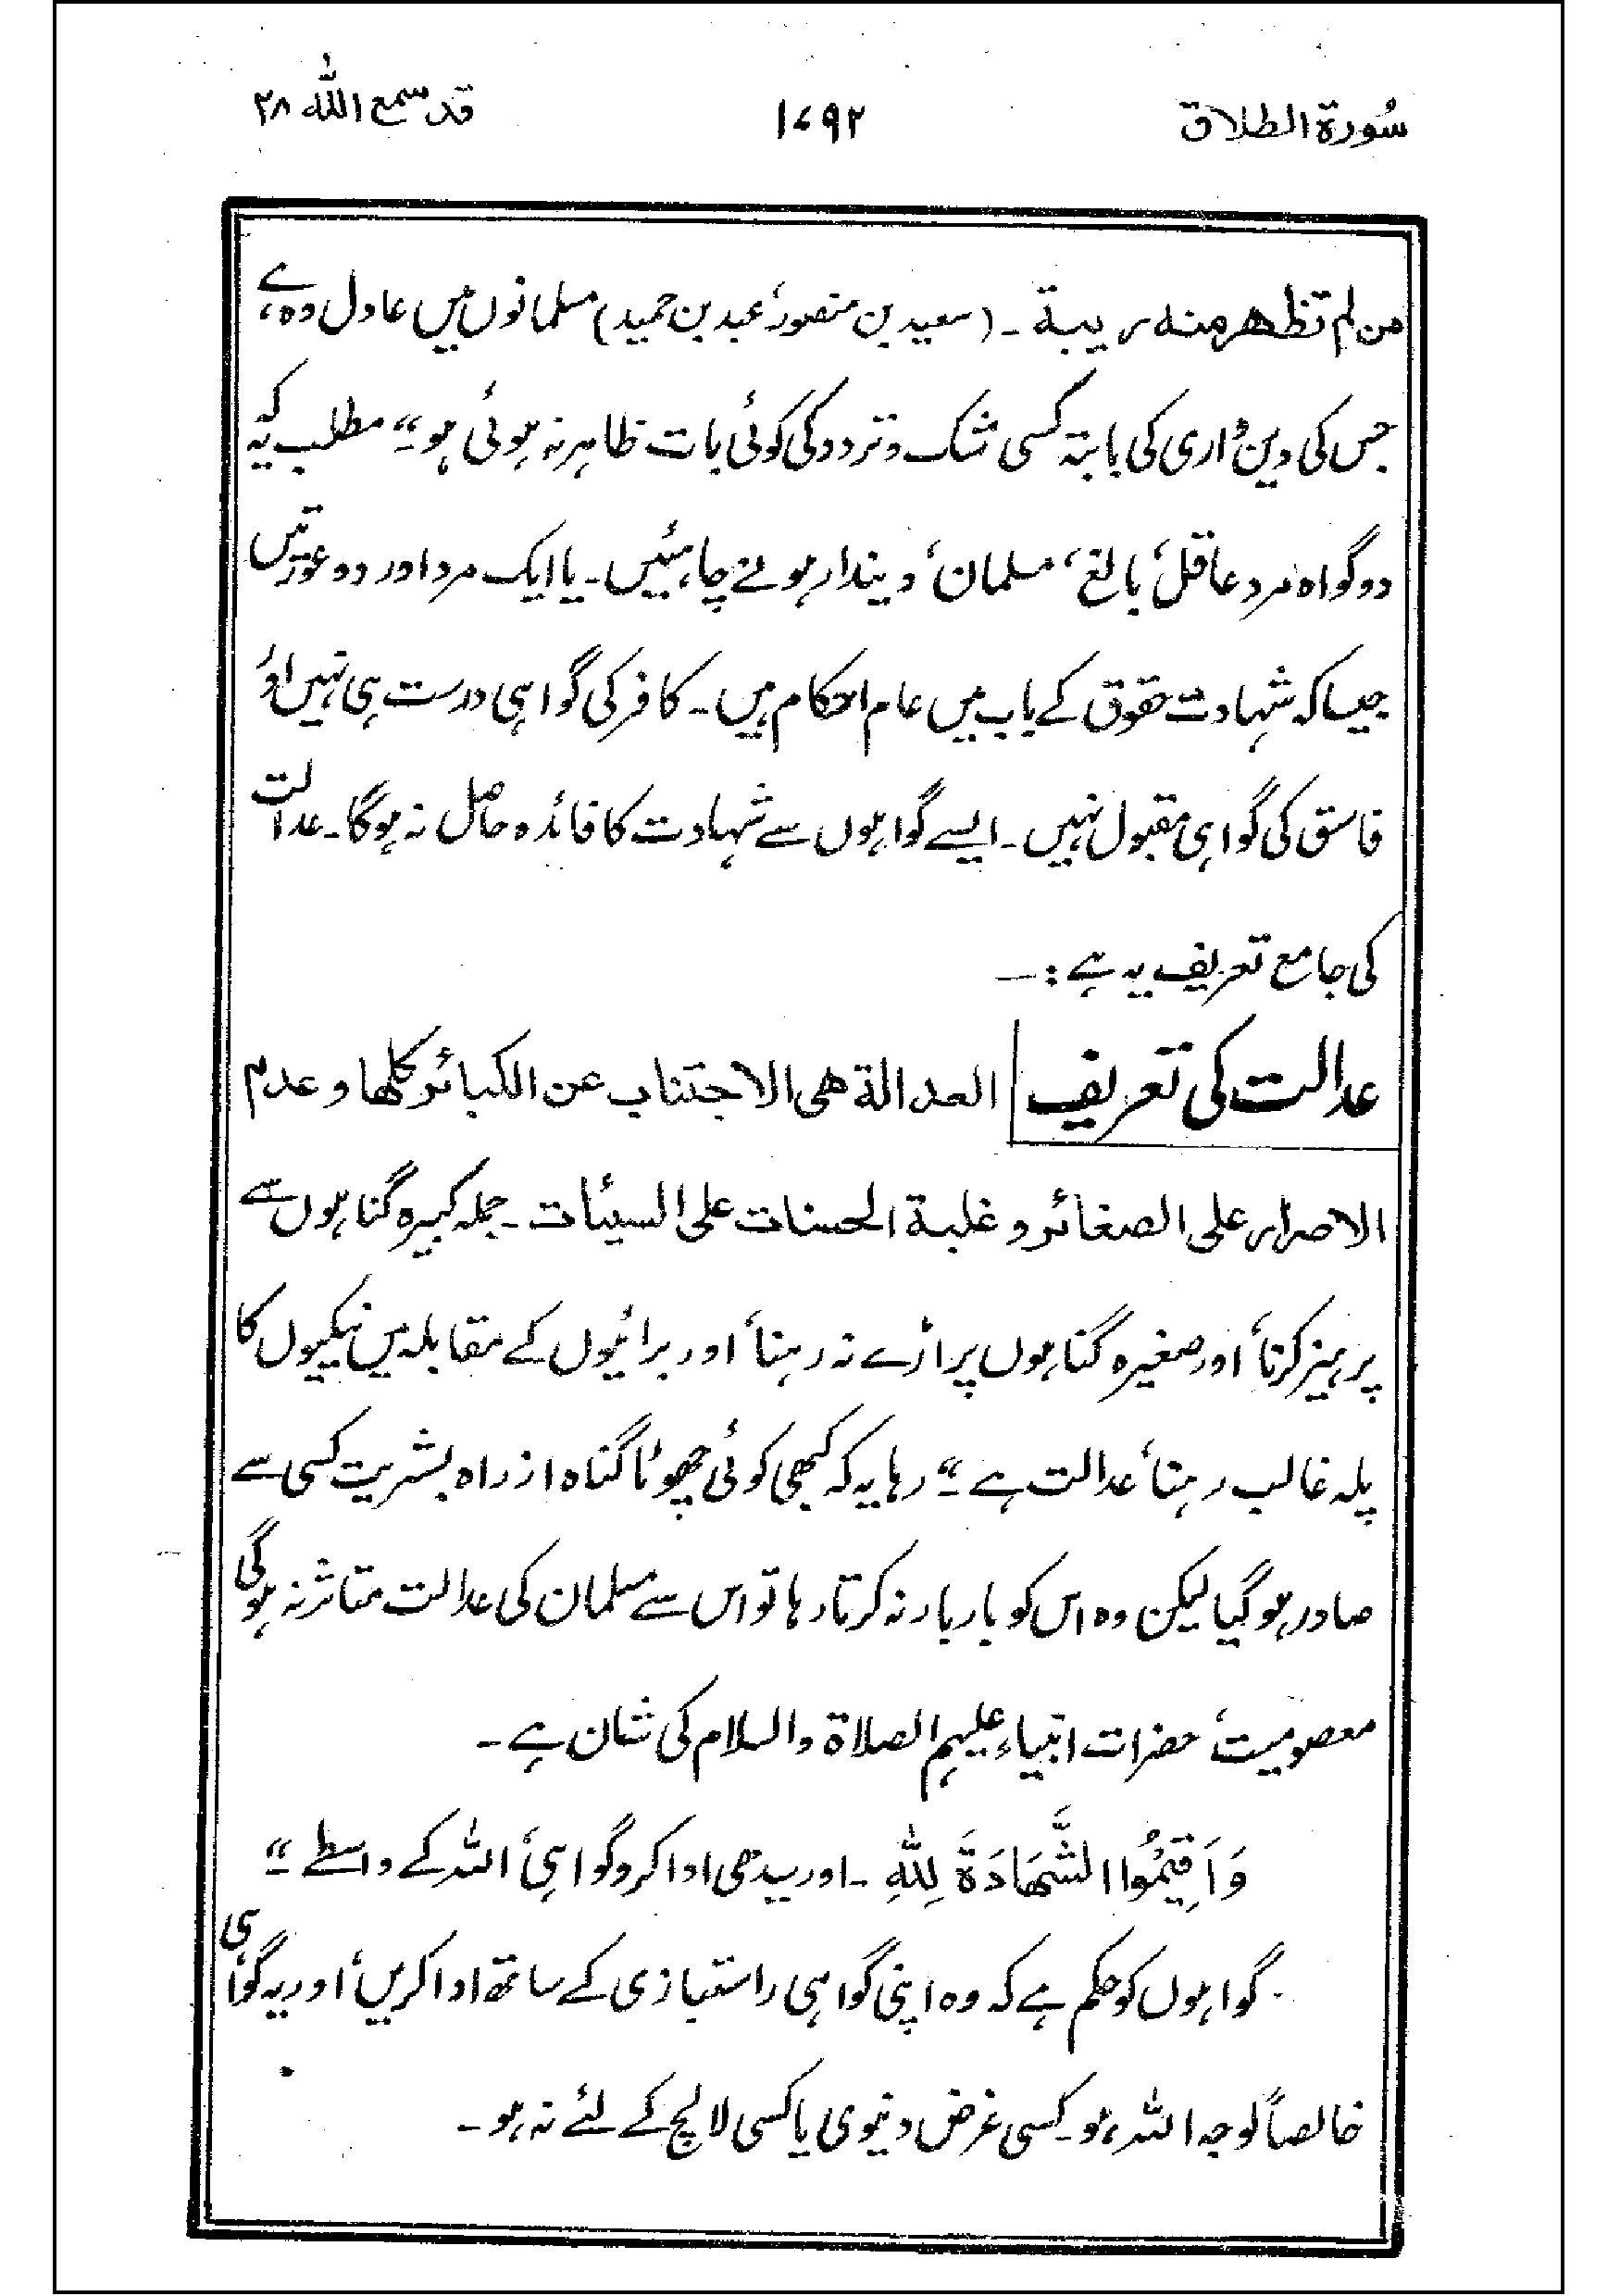 سُورة الطلاق ۱۷۹۲ قد سمع اللّٰہ ۲۸
من لم تظهر منه ريبة ۔ (سعید بن منصور، عبد بن حمید) مسلمانوں میں عادل وہ ہے،
جس کی دین داری کی بابتہ کسی شک و تردد کی کوئی بات ظاہر نہ ہوئی ہو“ مطلب یہ کہ
دو گواہ مرد عاقل، بالغ، مسلمان، دیندار ہونے چاہئیں۔ یا ایک مرد اور دو عورتیں
جیسا کہ شہادت حقوق کے باب میں عام احکام ہیں۔ کافر کی گواہی درست ہی نہیں اور
فاسق کی گواہی مقبول نہیں۔ ایسے گواہوں سے شہادت کا فائدہ حاصل نہ ہوگا۔ عدالت
کی جامع تعریف یہ ہے :—
عدالت کی تعریف العدالة هى الاجتناب عن الكبائر كلها و عدم
الاصرار على الصغائر و غلبة الحسنات على السيئات۔ جملہ کبیرہ گناہوں سے
پرہیز کرنا، اور صغیرہ گناہوں پر اڑے نہ رہنا، اور برائیوں کے مقابلہ میں نیکیوں کا
پلہ غالب رہنا، عدالت ہے“ رہا یہ کہ کبھی کوئی چھوٹا گناہ از راہ بشریت کسی سے
صادر ہو گیا لیکن وہ اس کو بار بار نہ کرتا رہا تو اس سے مسلمان کی عدالت متاثر نہ ہوگی
معصومیت، حضرات انبیاء علیہم الصلاۃ والسلام کی شان ہے۔
وَاَقِيْمُوا الشَّهَادَةَ لِلّٰهِ ۔ اور سیدھی ادا کرو گواہی، اللہ کے واسطے“
گواہوں کو حکم ہے کہ وہ اپنی گواہی راستبازی کے ساتھ ادا کریں، اور یہ گواہی
خالصاً لوجہ اللہ ہو۔ کسی غرض دنیوی یا کسی لالچ کے لئے نہ ہو۔